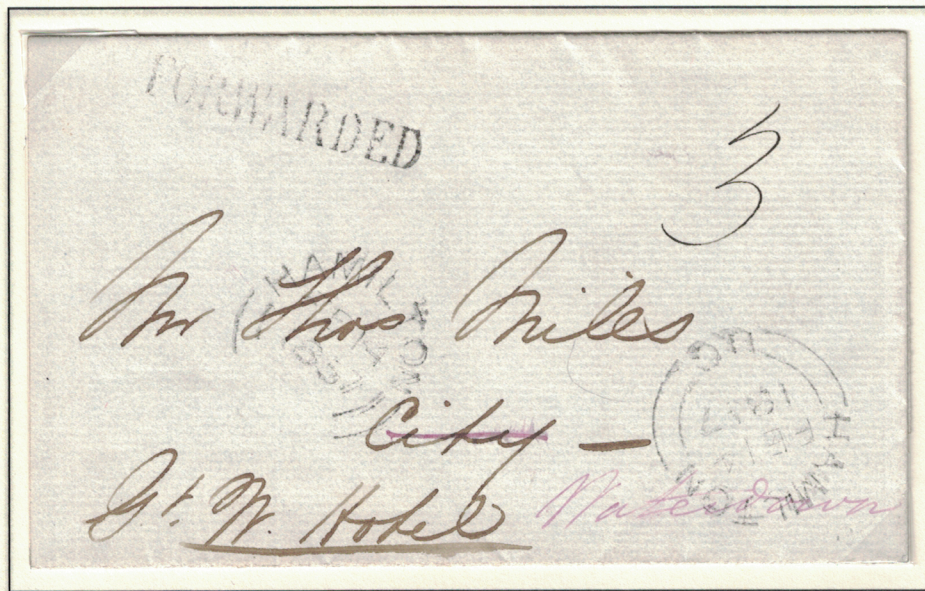 FORWARDED
3
Mr Thos Miles
City —
Gt. W. Hotel Waterdown
HAMILTON
HAMILTON